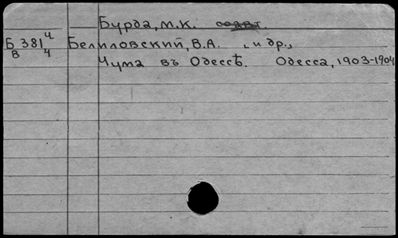 Бурда, М.К. соавт.
Б 381 ч Белиловский, В.А. , и др.,
В 4 Чума въ Одессѣ. Одесса, 1903-1904